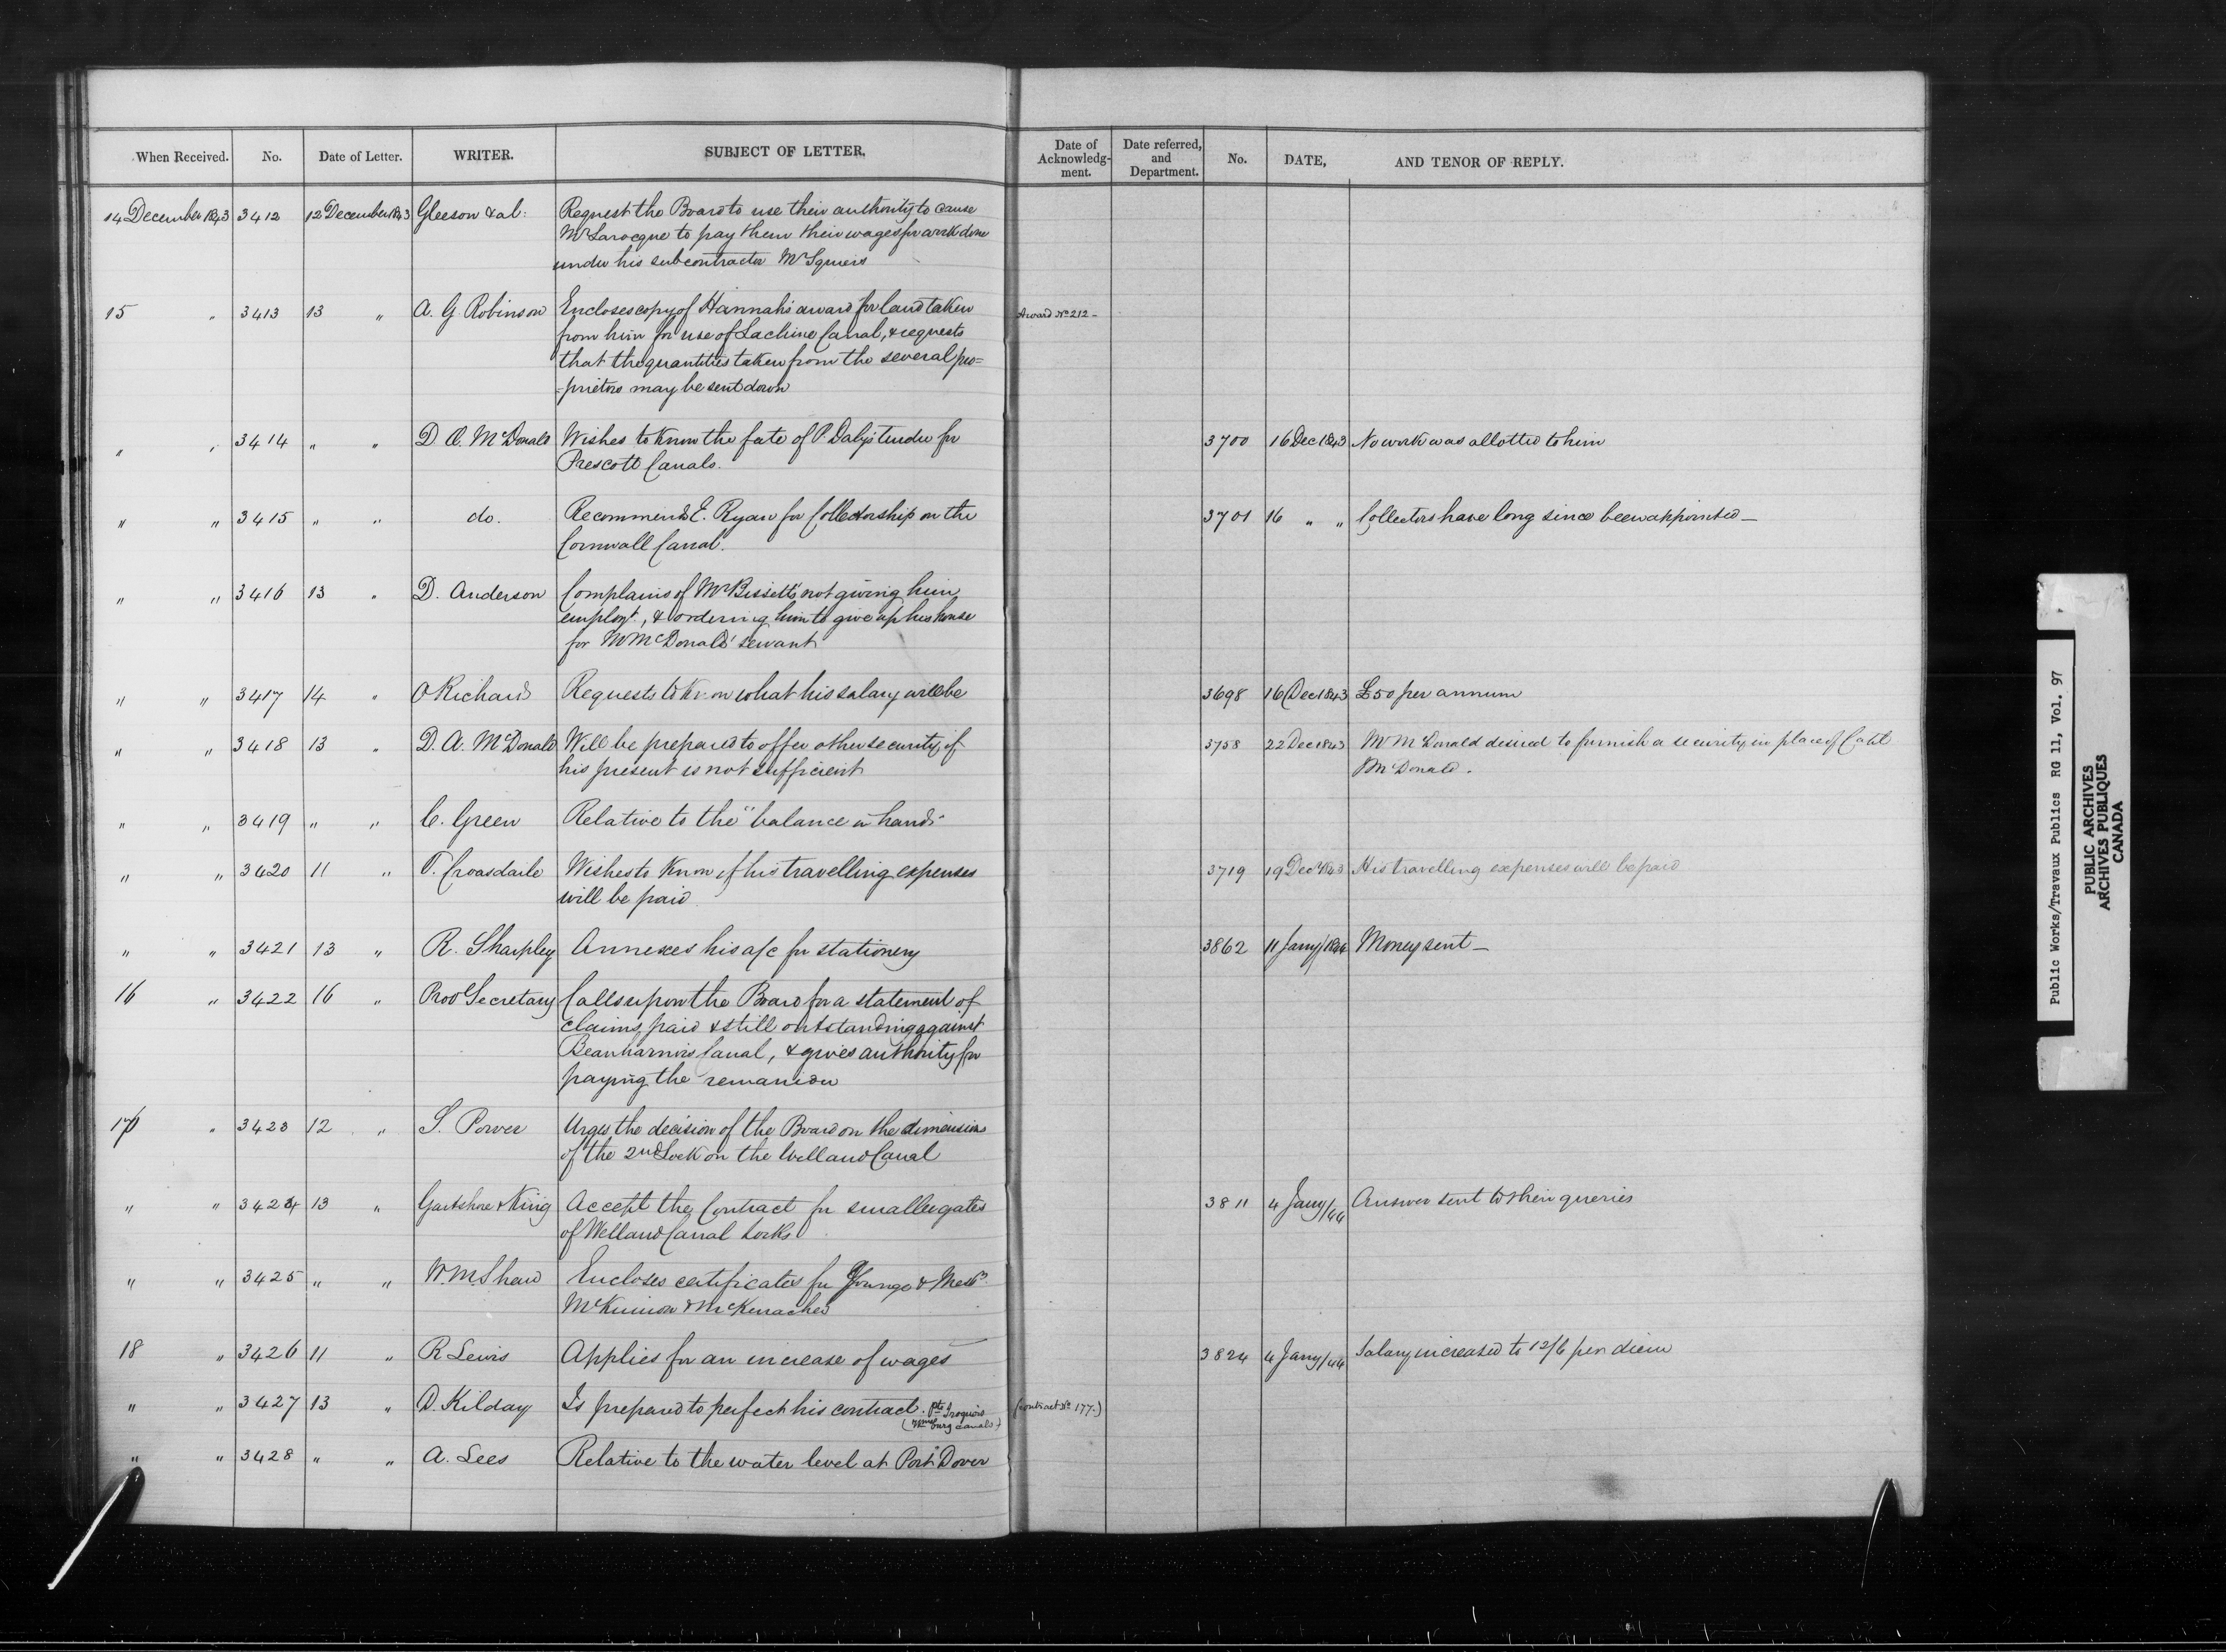 When Received. No. Date of Letter. WRITER. SUBJECT OF LETTER. Date of Acknowledg-ment. Date referred, and Department. No. DATE, AND TENOR OF REPLY.
14 December 1843 3412 12 December 1843 Gleeson & al: Request the Board to use their authority to cause
Mr Larocque to pay them their wages for work done
under his subcontractor Mr Squiers
15 " 3413 13 " A. G. Robinson Encloses copy of Hannah's award for land taken Award No 212 -
from him for use of Lachine Canal, & requests
that the quantities taken from the several pro=
=prietors may be sent down
" " 3414 " " D. A. McDonald Wishes to know the fate of P. Daly's tender for 3700 16 Dec 1843 No work was allotted to him
Prescott Canals.
" " 3415 " " do. Recommends E. Ryan for Collectorship on the 3701 16 " " Collectors have long since been appointed —
Cornwall Canal.
" " 3416 13 " D. Anderson Complains of Mr Bissett's not giving him
employt, & ordering him to give up his house
for Mr McDonald's servant
" " 3417 14 " O Richard Requests to know what his salary will be 3698 16 Dec 1843 £50 per annum
" " 3418 13 " D. A. McDonald Will be prepared to offer other security if 3758 22 Dec 1843 Mr McDonald desired to furnish a security in place of
his present is not sufficient McDonald.
" " 3419 " " C. Green Relative to the "balance in hand"
" " 3420 11 " T. Croasdaile Wishes to know if his travelling expenses 3719 19 Dec 1843 His travelling expenses will be paid
will be paid
" " 3421 13 " R. Sharpley Annexes his a/c for stationery 3862 11 Jany/1844 Money sent —
16 " 3422 16 " Prov Secretary Calls upon the Board for a statement of
claims paid & still outstanding against
Beauharnois Canal, & gives authority for
paying the remainder
16 " 3423 12 " S. Power Urges the decision of the Board on the dimensions
of the 2nd Lock on the Welland Canal
" " 3424 13 " Gartshore & King Accept the Contract for smaller gates 3811 4 Jany/44 Answer sent to their queries
of Welland Canal Locks
" " 3425 " " W. M. Shaw Encloses certificates for Younge & Messrs
McKinnon &
18 " 3426 11 " R Lewis Applies for an increase of wages 3824 4 Jany/44 Salary increased to 12/6 per diem
" " 3427 13 " D. Kilday Is prepared to perfect his contract. pte Iroquois (Contract No 177.)
(Wmsburg Canals)
" " 3428 " " A. Lees Relative to the water level at Port Dover
Public Works/Travaux Publics RG 11, Vol. 97
PUBLIC ARCHIVES
ARCHIVES PUBLIQUES
CANADA